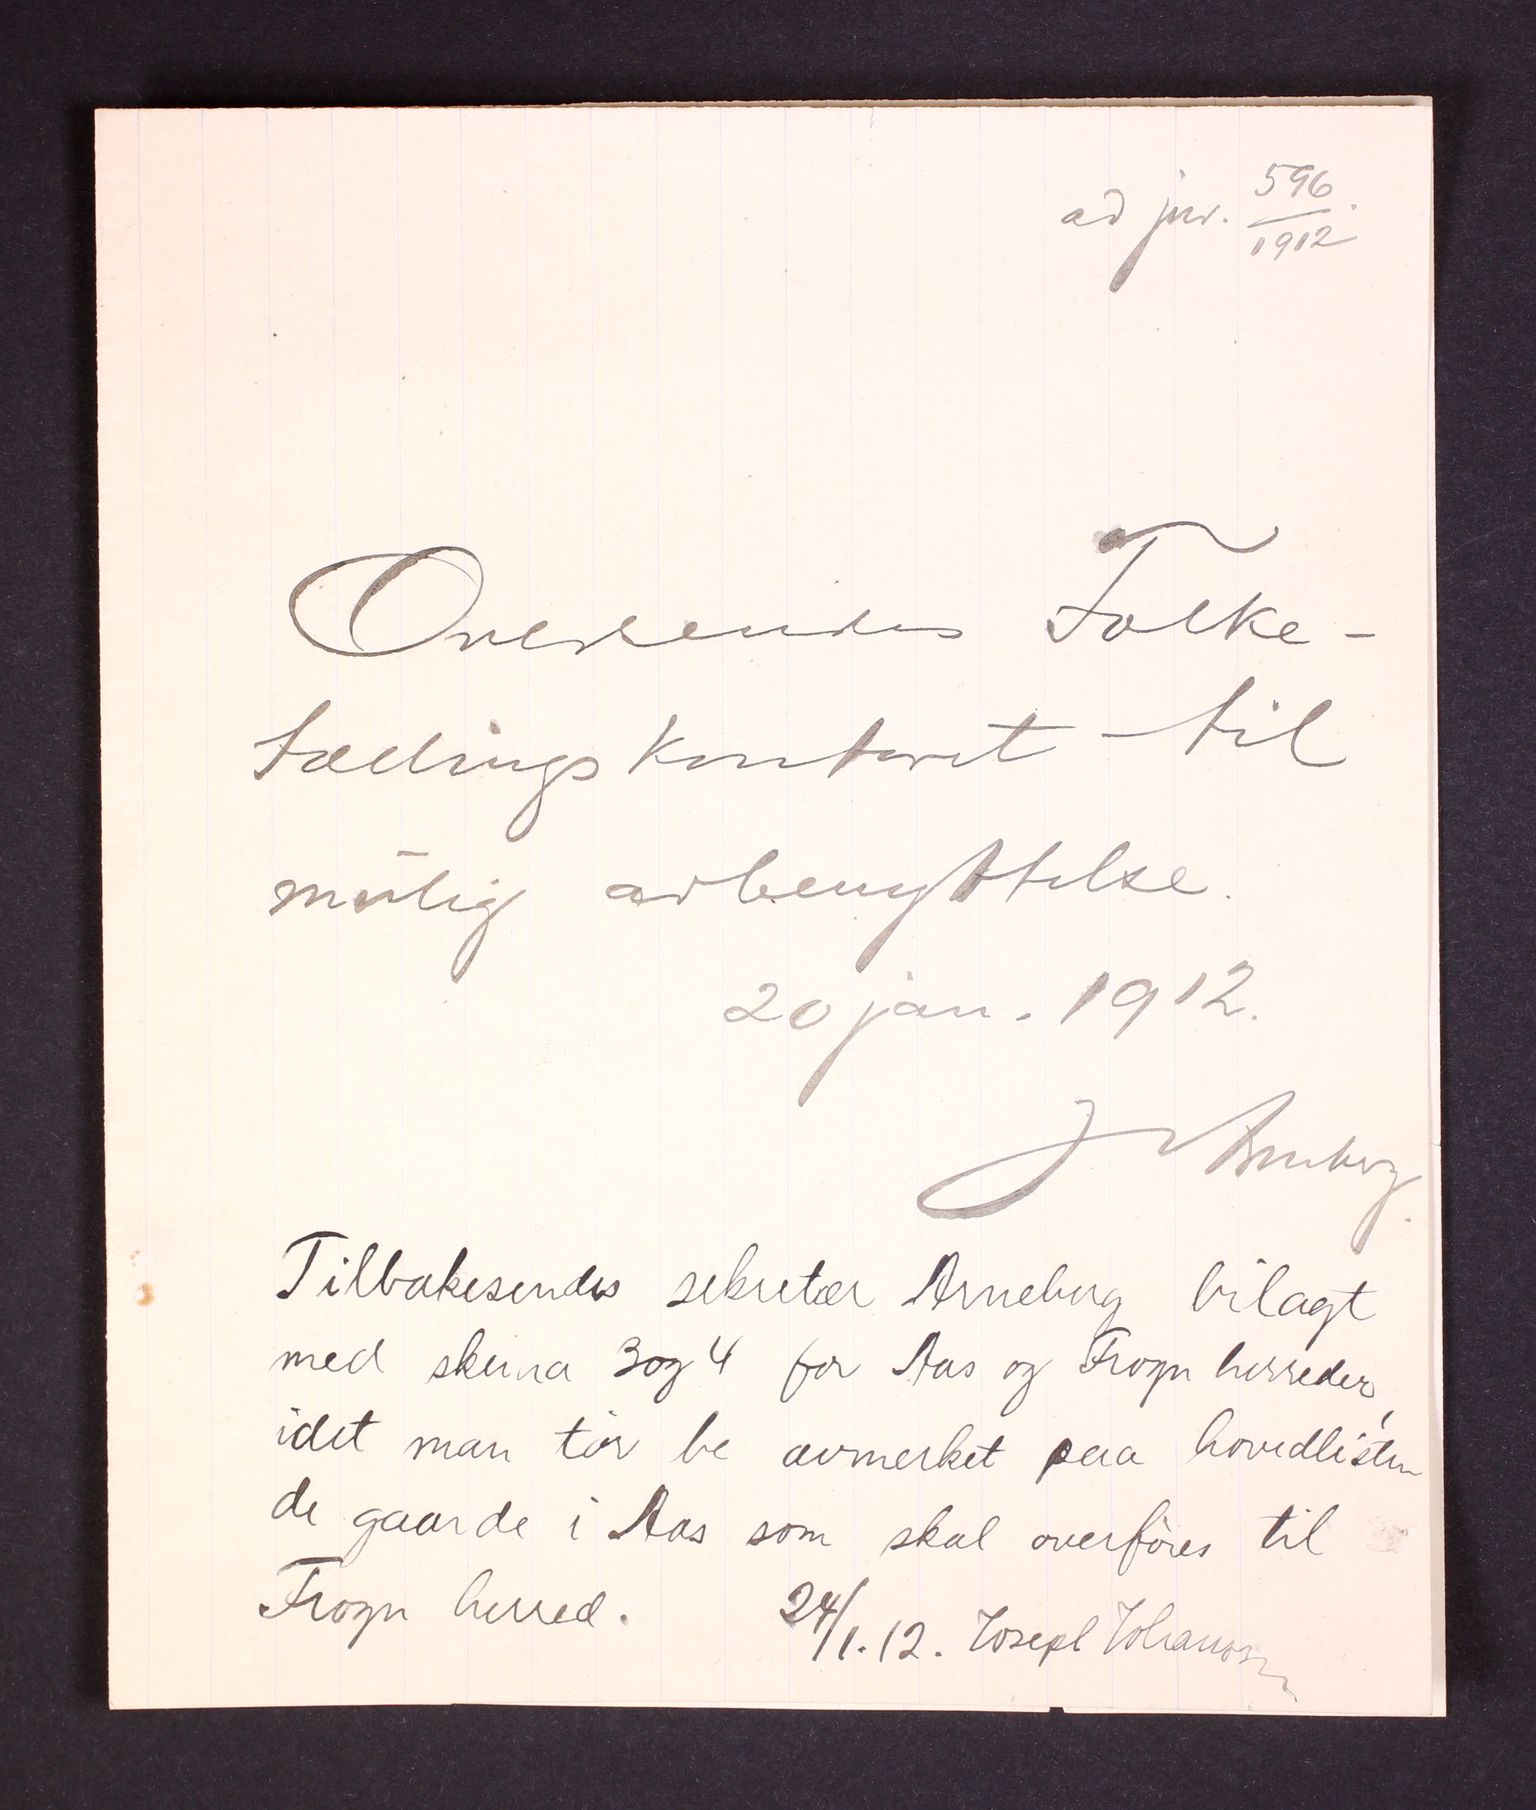 ad jnr. 596/1912.
Oversendes Folke-
tællingskontoret til
mulig avbenyttelse.
20 jan. 1912.
Arneberg.
Tilbakesendes sekretær Arneberg bilagt
med skema 3 og 4 for Aas og Frogn herreder,
idet man tör be avmerket paa hovedlisten
de gaarde i Aas som skal overföres til
Frogn herred. 24/1.12. Joseph Johanssen